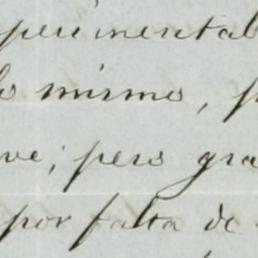 perimental
lo mismo, p
ve; pero gra
por falta de